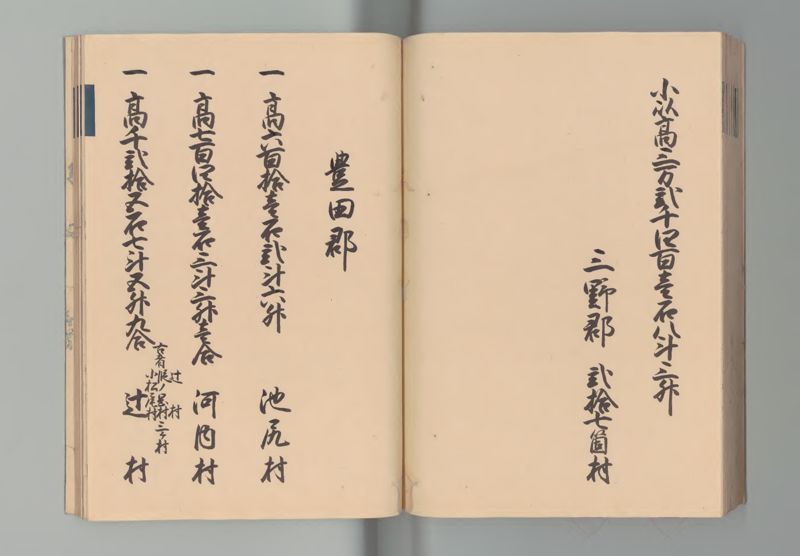 小以高三万弐千四百壱石八斗三升
三野郡 弐拾七箇村
豊田郡
一 高六百拾壱石弐斗六升 池尻村
一 高七百四拾壱石三斗三升壱合 河内村
一 高千弐拾五石七斗五升九合 辻村
辻村
小松尾村
三ヶ村